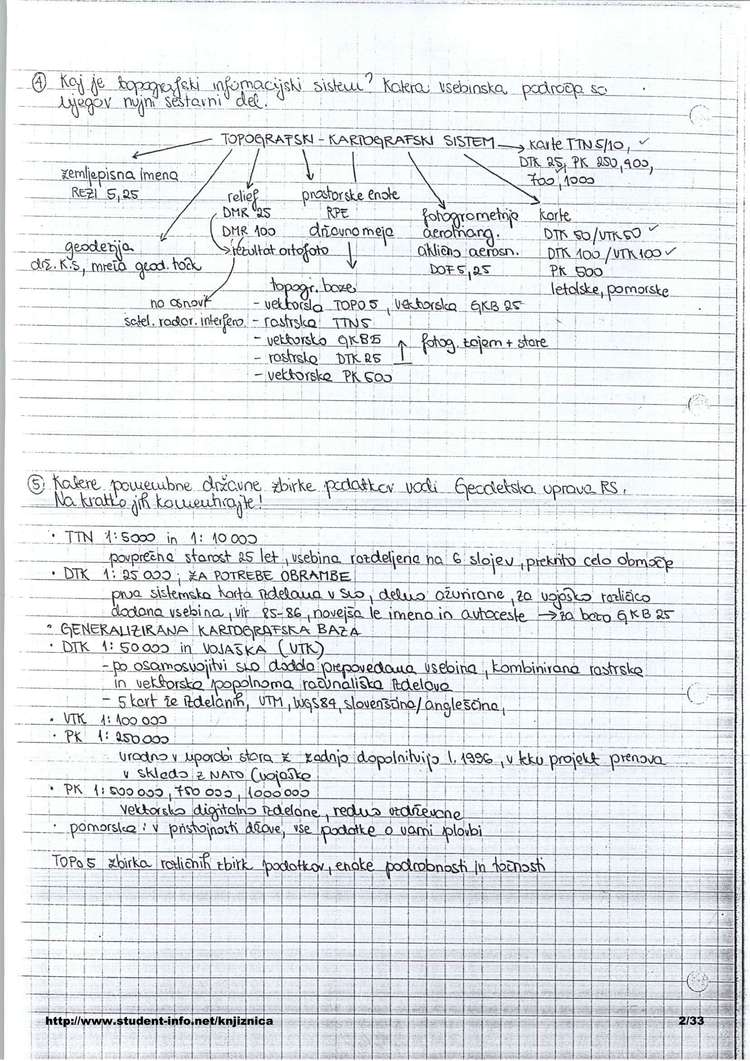 ④ Kaj je topografski informacijski sistem? Katera vsebinska področja so
njegov nujni sestavni del.
TOPOGRAFSKI - KARTOGRAFSKI SISTEM → karte TTN 5/10, ✓
DTK 25, PK 250, 400,
700, 1000
zemljepisna imena
REZI 5,25
geodezija
drž. K.S, mreža geod. točk
relief
DMR 25
DMR 100
→ rezultat ortofoto
na osnovi
satel. radar. interfero.
prostorske enote
RPE
državno meja
topogr. baze
- vektorsla TOPO 5, vektorska GKB 25
- rastrska TTN5
- vektorsko GKB5
- rastrska DTK 25
- vektorska PK 500
↑ fotog. zajem + stare
fotogrametrija
aerosnang.
ciklično aerosn.
DOF 5,25
karte
DTK 50/VTK 50 ✓
DTK 100/VTK 100 ✓
PK 500
letalske, pomorske
⑤ Katere pomembne državne zbirke podatkov vodi Geodetska uprava RS.
Na kratko jih komentirajte!
· TTN 1:5000 in 1: 10 000
povprečna starost 25 let, vsebina razdeljena na 6 slojev, prekrito celo območje
· DTK 1: 25 000; ZA POTREBE OBRAMBE
prva sistemska karta izdelana v SLO, delno ažurirane, za vojaško različico
dodana vsebina, vir 85-86, novejša le imena in avtoceste → za bazo GKB 25
· GENERALIZIRANA KARTOGRAFSKA BAZA
· DTK 1: 50 000 in VOJAŠKA (VTK)
- po osamosvojitvi SLO dodala prepovedana vsebina, kombinirana rastrska
in vektorska popolnoma računališka izdelava
- 5 kart že izdelanih, UTM, WGS84, slovenščina/angleščina,
· VTK 1: 100 000
· PK 1: 250 000
uradno v uporabi stara z zadnjo dopolnitvijo l. 1996, v teku projekt prenova
v skladu z NATO (vojaško
· PK 1: 500 000, 750 000, 1000 000
vektorsko digitalno izdelane, redno vzdrževane
· pomorska: v pristojnosti države, vse podatke o varni plovbi
TOPO 5 zbirka različnih zbirk podatkov, enake podrobnosti in točnosti
http://www.student-info.net/knjiznica
2/33